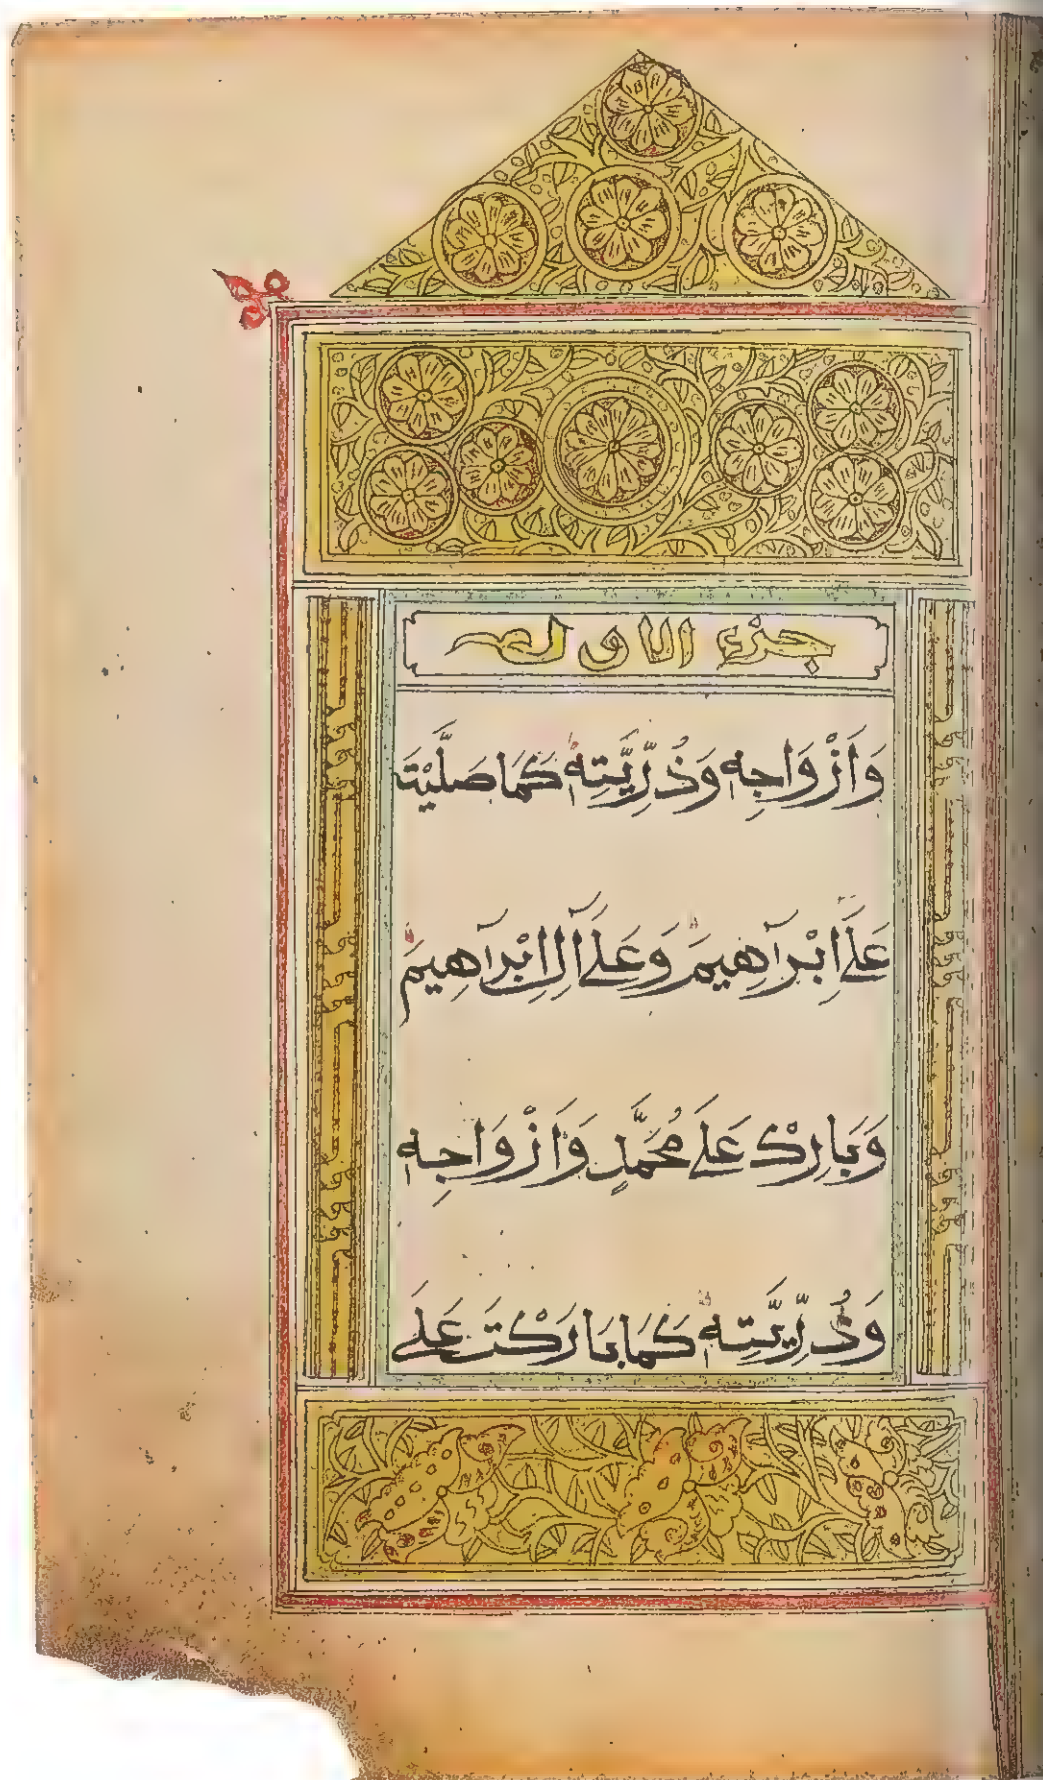 جزء الاول
وَاَزْوَاجِهٖ وَذُرِّيَّتِهٖ كَمَا صَلَّيْتَ
عَلَى اِبْرَاهِيمَ وَعَلَى آلِ اِبْرَاهِيمَ
وَبَارِكْ عَلَى مُحَمَّدٍ وَاَزْوَاجِهٖ
وَذُرِّيَّتِهٖ كَمَا بَارَكْتَ عَلَى